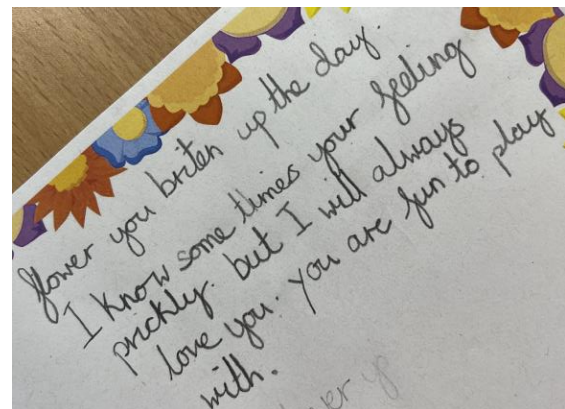 flower you briten up the day.
I know some times your feeling
prickly. but I will always
love you. you are fun to play
with.